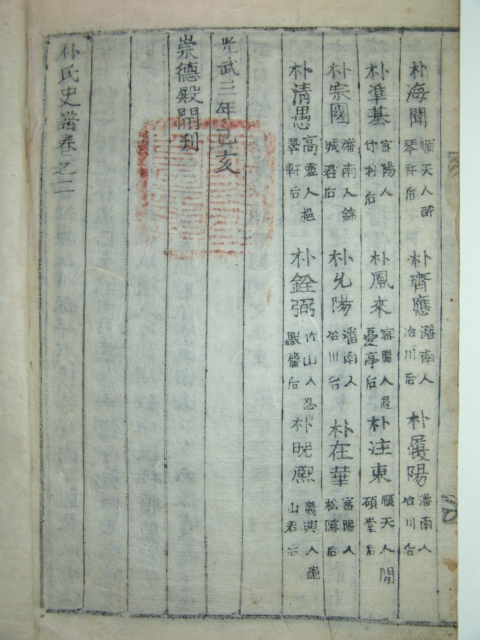 朴海聞 順天人醉琴軒后 朴齊應 潘南人冶川后 朴履陽 潘南人冶川后
朴準基 密陽人 朴鳳來 密陽人 憂亭后 朴注東 順天人閒碩堂后
朴宗國 潘南人錦城君后 朴允陽 潘南人冶川后 朴在華 密陽人松隱后
朴清愚 高靈人挹翠軒后 朴銓弼 竹山人忍默齋后 朴晚熙 義興人龜山君后
光武三年己亥
崇德殿開刊
朴氏史譜卷之二